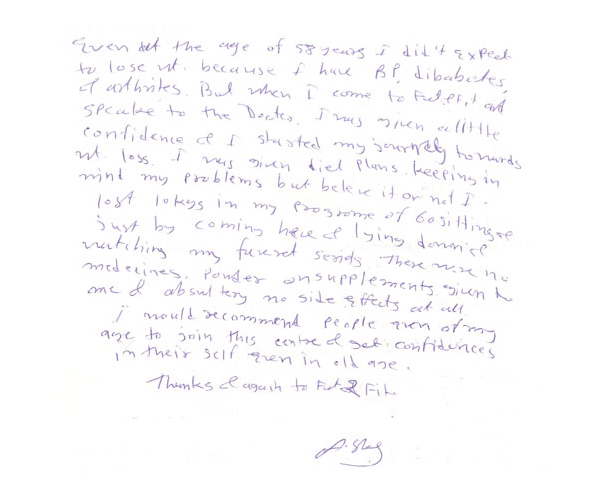 Even at the age of 58 years I did't expect
to lose wt. because I have BP, dibabetes,
& arthrites. But when I come to Fat2Fit and
speake to the Doctor, I was given a little
confidence & I started my journey towards
wt. loss. I was given diet plans. keeping in
mind my problems but beleve it or not I
lost 10kgs in my programe of 60 sittings
just by coming here & lying down &
watching my favret serials There were no
medecines. Powder or supplements given to
me & absultery no side effects at all
I would recommend people even of my
age to join this centre & get confidences
in their self even in old age.
Thanks & again to Fat 2 Fit